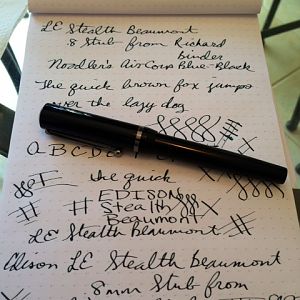 LE Stealth Beaumont
.8 Stub from Richard
Binder
Noodler's Air Corp Blue-Black
The quick brown fox jumps
over the lazy dog
A B C D E
the quick
EDISON
Stealth
Beaumont
LE Stealth Beaumont
Edison LE Stealth Beaumont
8mm Stub from